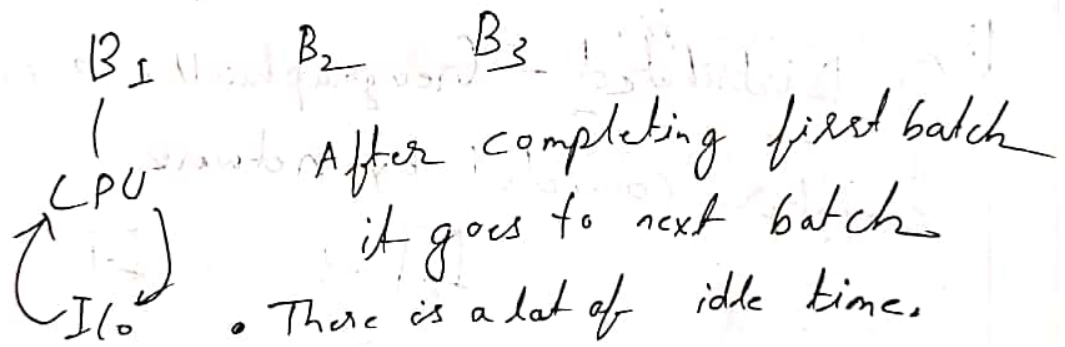 B1 B2 B3
CPU After completing first batch
it goes to next batch.
I/o • There is a lot of idle time.